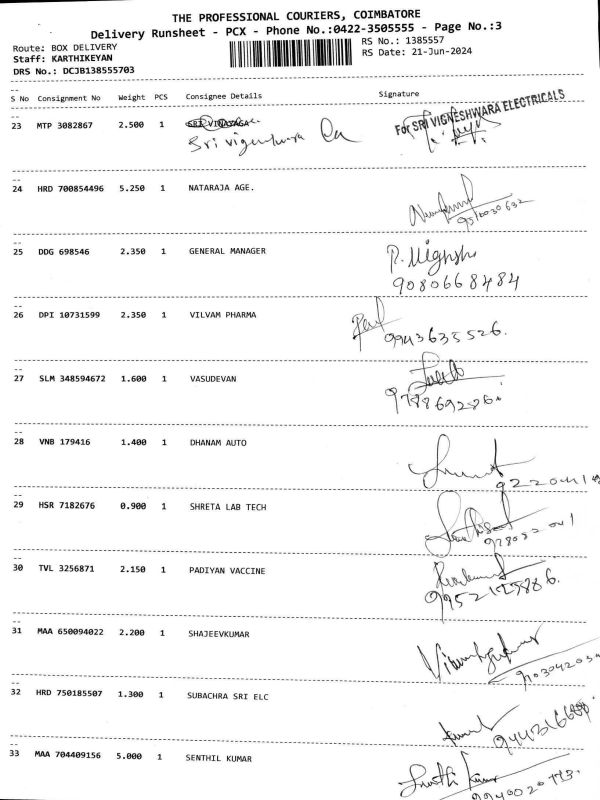 THE PROFESSIONAL COURIERS, COIMBATORE
Delivery Runsheet - PCX - Phone No.:0422-3505555 - Page No.:3
Route: BOX DELIVERY RS No.: 1385557
Staff: KARTHIKEYAN RS Date: 21-Jun-2024
DRS No.: DCJB138555703
S No Consignment No Weight PCS Consignee Details Signature
23 MTP 3082867 2.500 1
For SRI VIGNESHWARA ELECTRICALS
24 HRD 700854496 5.250 1 NATARAJA AGE.
25 DDG 698546 2.350 1 GENERAL MANAGER
9080668484
26 DPI 10731599 2.350 1 VILVAM PHARMA
9943635526.
27 SLM 348594672 1.600 1 VASUDEVAN
9788692860
28 VNB 179416 1.400 1 DHANAM AUTO
29 HSR 7182676 0.900 1 SHRETA LAB TECH
30 TVL 3256871 2.150 1 PADIYAN VACCINE
31 MAA 650094022 2.200 1 SHAJEEVKUMAR
32 HRD 750185507 1.300 1 SUBACHRA SRI ELC
33 MAA 704409156 5.000 1 SENTHIL KUMAR